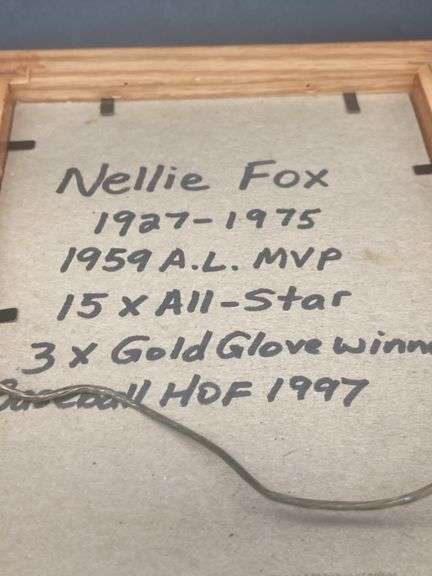 Nellie Fox
1927-1975
1959 A.L. MVP
15 x All-Star
3 x Gold Glove winne
Baseball HOF 1997